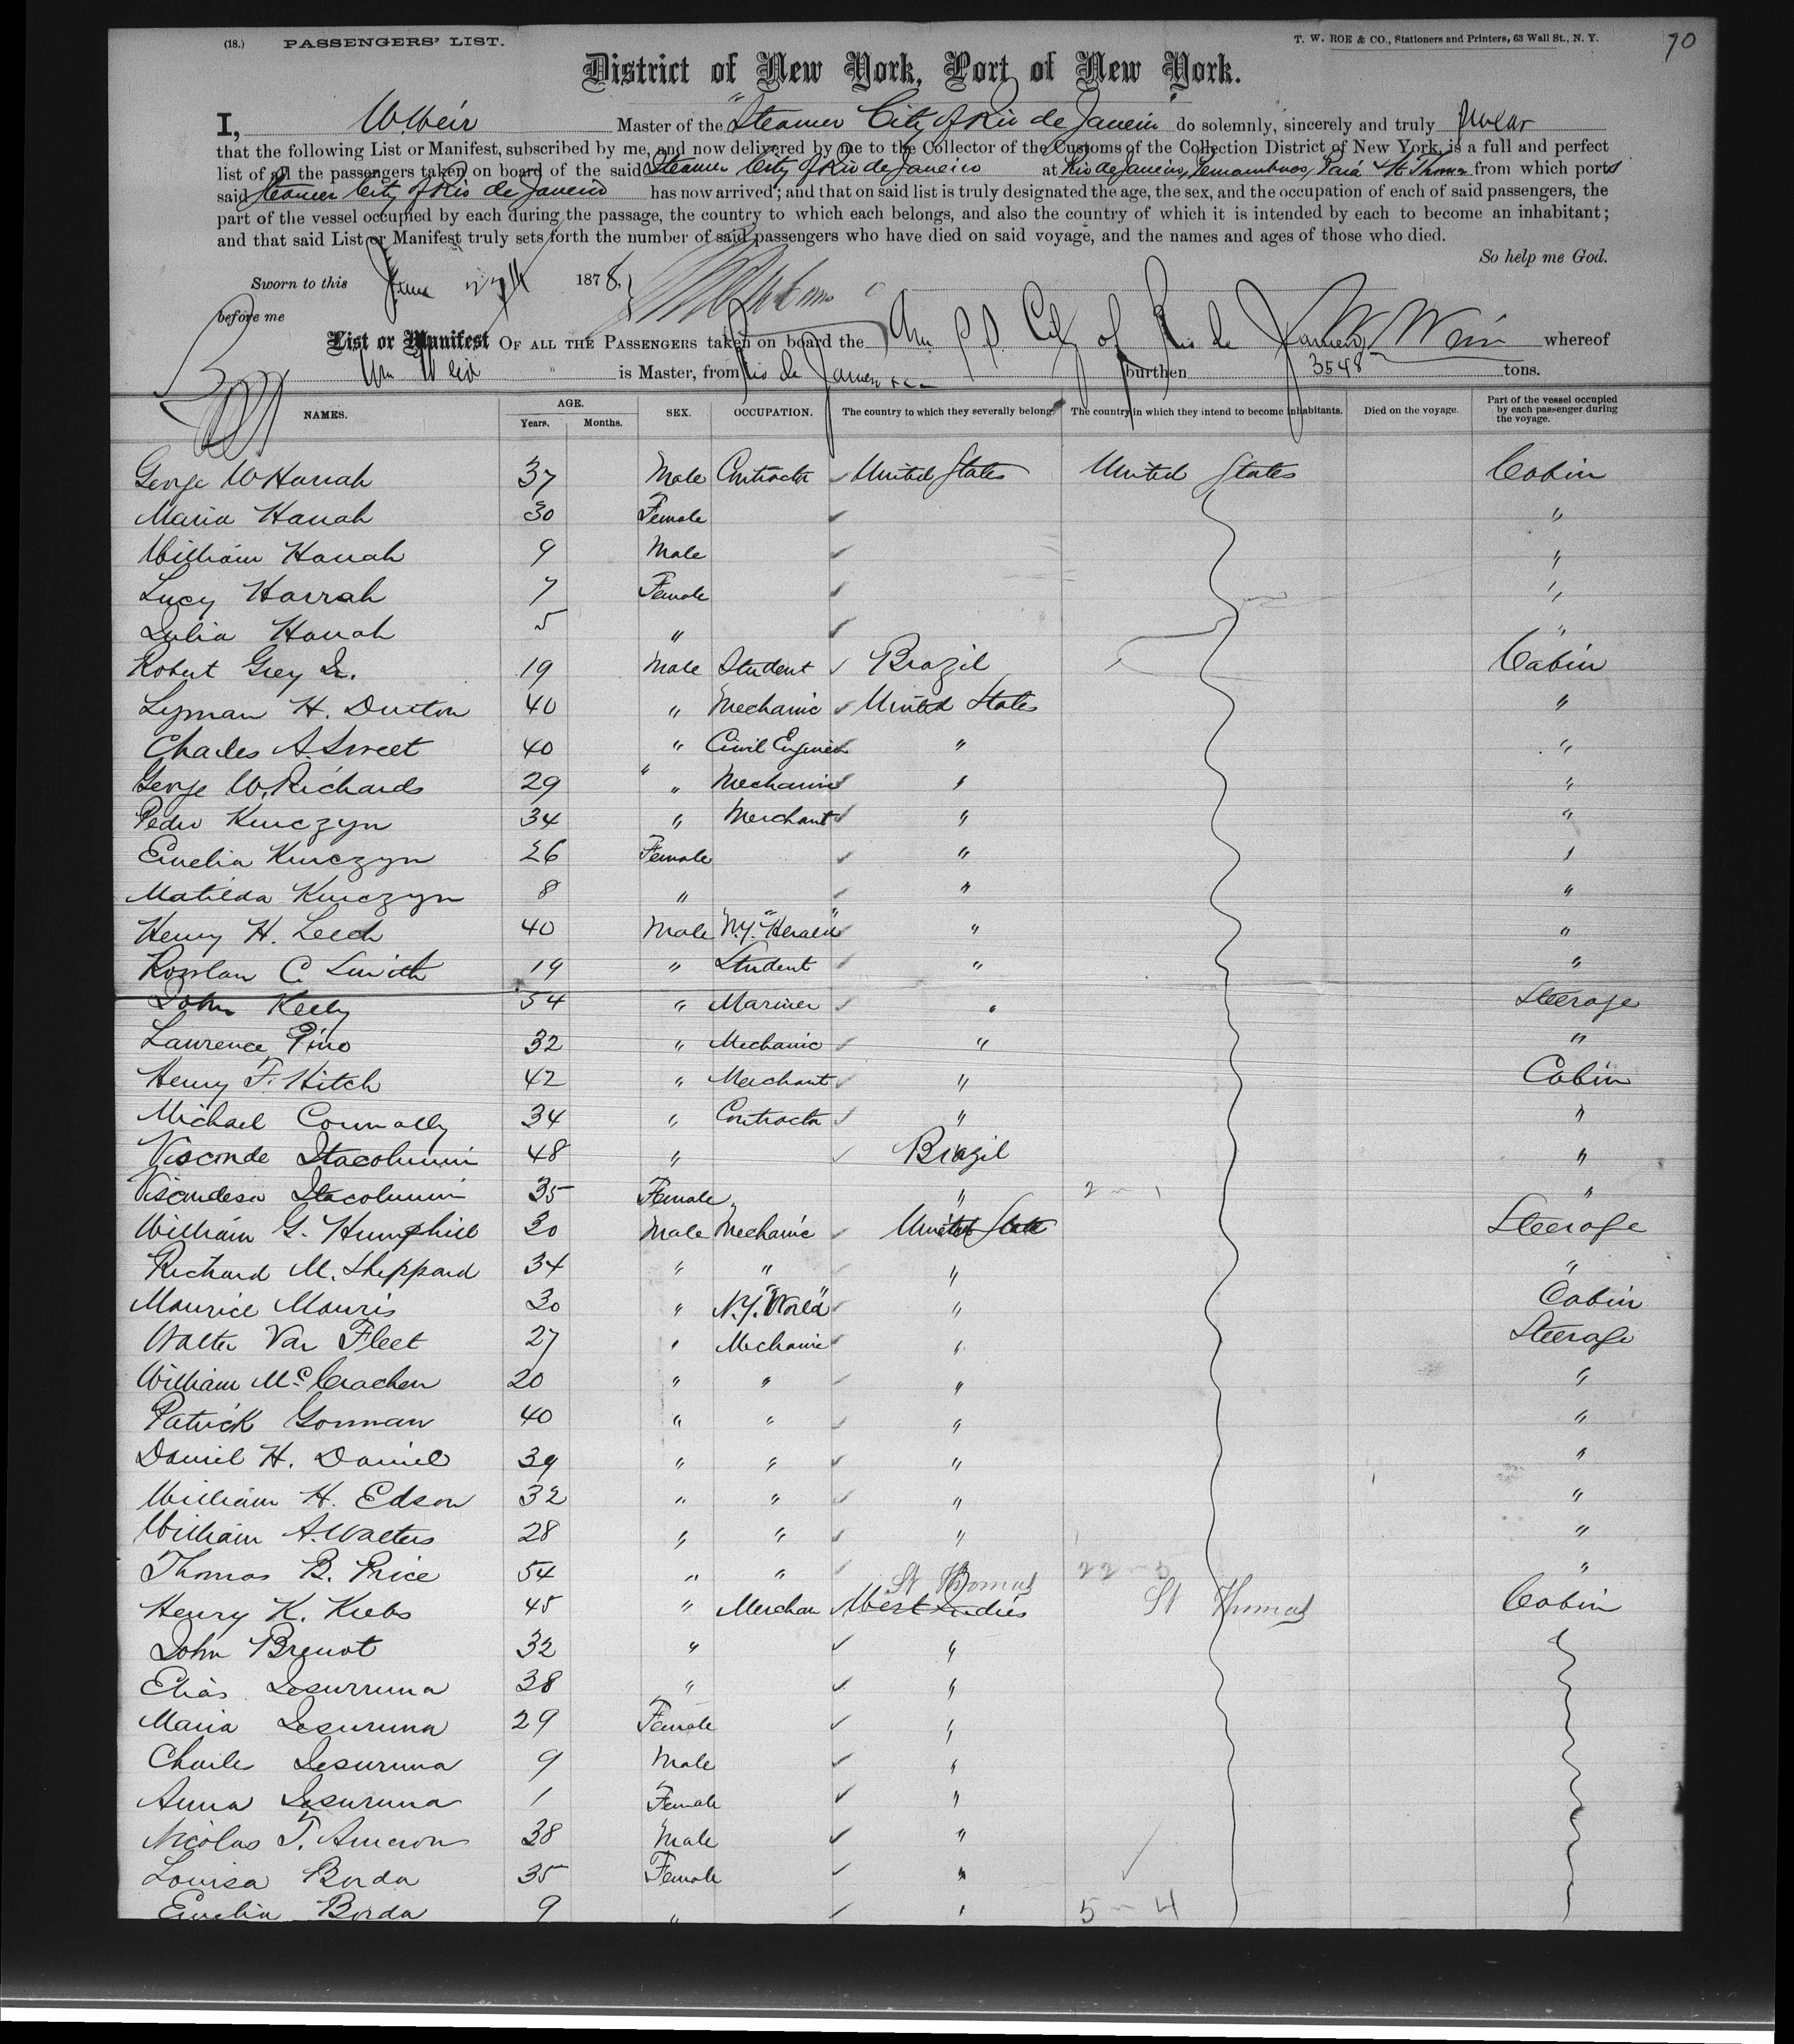 (18.) PASSENGERS' LIST. T. W. ROE & CO., Stationers and Printers, 63 Wall St., N. Y. 70
District of New York, Port of New York.
I, W. Weir Master of the "Steamer City of Rio de Janeiro" do solemnly, sincerely and truly swear
that the following List or Manifest, subscribed by me, and now delivered by me to the Collector of the Customs of the Collection District of New York, is a full and perfect
list of all the passengers taken on board of the said Steamer City of Rio de Janeiro at Rio de Janeiro, Pernambuco, Pará & St Thomas from which ports
said Steamer City of Rio de Janeiro has now arrived; and that on said list is truly designated the age, the sex, and the occupation of each of said passengers, the
part of the vessel occupied by each during the passage, the country to which each belongs, and also the country of which it is intended by each to become an inhabitant;
and that said List or Manifest truly sets forth the number of said passengers who have died on said voyage, and the names and ages of those who died.
So help me God.
Sworn to this June 27th 1878,
before me
List or Manifest OF ALL THE PASSENGERS taken on board the Am S.S. City of Rio de Janeiro W Weir whereof
Wm Weir is Master, from Rio de Janeiro &c burthen 3548 tons.
NAMES. AGE. Years. Months. SEX. OCCUPATION. The country to which they severally belong. The country in which they intend to become inhabitants. Died on the voyage. Part of the vessel occupied by each passenger during the voyage.
George W Harrah 37 Male Contractor United States United States Cabin
Maria Harrah 30 Female "
William Harrah 9 Male "
Lucy Harrah 7 Female "
Julia Harrah 5 " "
Robert Grey Jr. 19 Male Student Brazil Cabin
Lyman H. Dutton 40 " Mechanic United States "
Charles A. Sweet 40 " Civil Engineer " "
George W. Richards 29 " Mechanic " "
Pedro Kurczyn 34 " Merchant " "
Emelia Kurczyn 26 Female " "
Matilda Kurczyn 8 " " "
Henry H. Leech 40 Male N.Y. "Herald" " "
C. Smith 19 " Student " "
John Kelly 54 " Mariner " Steerage
Laurence Pino 32 " Mechanic " "
Henry F. Hitch 42 " Merchant " Cabin
Michael Connolly 34 " Contractor " "
Visconde Itacolumi 48 " Brazil "
Viscondesa Itacolumi 35 Female " "
William G. Humphill 30 Male Mechanic United State Steerage
Richard M. Sheppard 34 " " " "
Maurice Mauris 30 " N.Y. "World" " Cabin
Walter Van Fleet 27 " Mechanic " Steerage
William McCrachen 20 " " " "
Patrick Gorman 40 " " " "
Daniel H. Daniel 39 " " " "
William H. Edson 32 " " " "
William A. Walters 28 " " " "
Thomas B. Price 54 " " " "
St Thomas
Henry K. Krebs 45 " Merchan West Indies St Thomas Cabin
John Brenot 32 " "
Elias Jesurruna 38 " "
Maria Jesuruna 29 Female "
Charle Jesuruna 9 Male "
Anna Jesuruna 1 Female "
Nicolas T. 38 Male "
Louisa Borda 35 Female "
Emelia Borda 9 " " 5 - 4